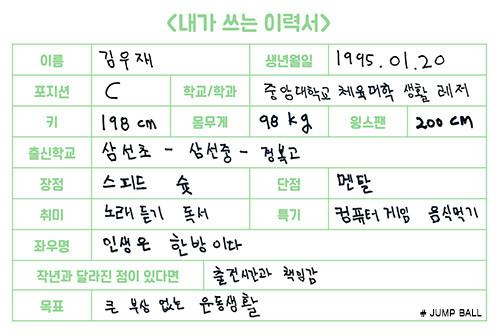 <내가 쓰는 이력서>
이름 김우재 생년월일 1995.01.20
포지션 C 학교/학과 중앙대학교 체육대학 생활 레저
키 198 cm 몸무게 98 kg 윙스팬 200 cm
출신학교 삼선초 - 삼선중 - 경복고
장점 스피드 슛 단점 멘탈
취미 노래듣기 독서 특기 컴퓨터게임 음식먹기
좌우명 인생은 한방이다
작년과 달라진 점이 있다면 출전시간과 책임감
목표 큰 부상 없는 운동생활
# JUMP BALL